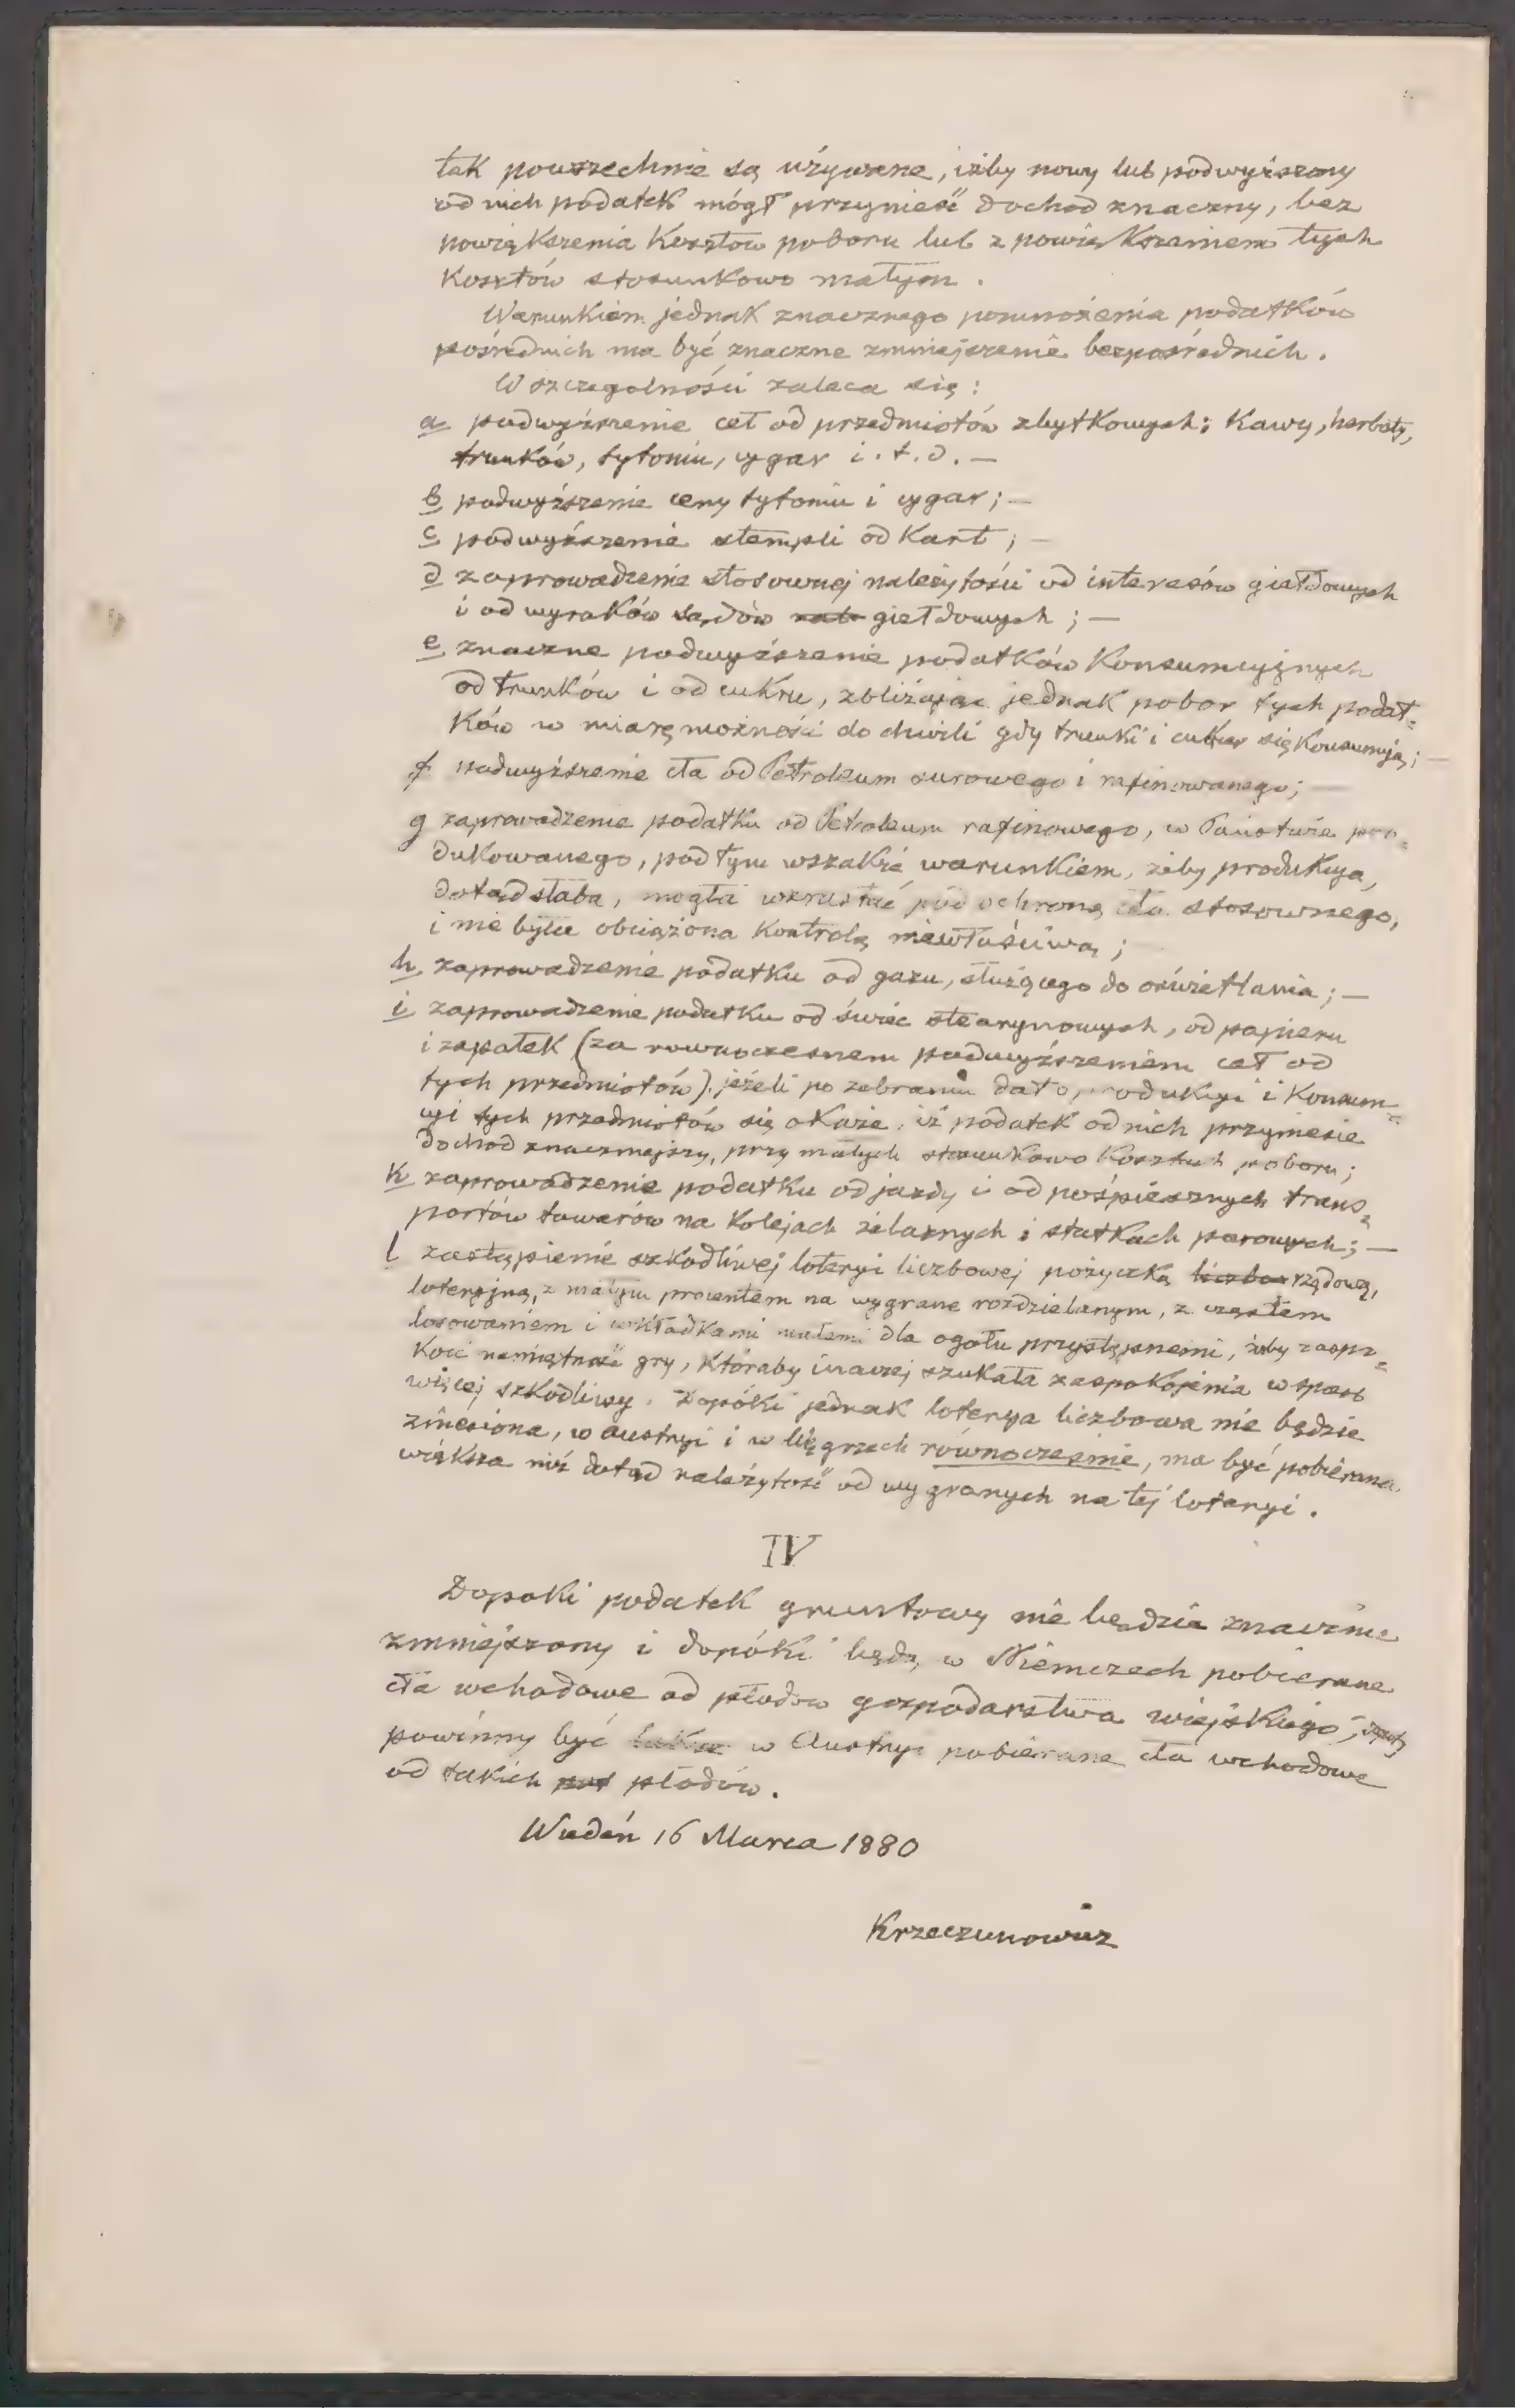 tak powszechnie są używane, iżby nowy lub podwyższony
od nich podatek mógł przynieść dochod znaczny, bez
powiększenia kosztów poboru lub z powiększeniem tych
kosztów stosunkowo małym.
Warunkiem jednak znacznego pomnożenia podatków
pośrednich ma być znaczne zmniejszenie bezpośrednich.
W szczegolności zaleca się:
a podwyższenie ceł od przedmiotów zbytkowych: kawy, herbaty,
trunków, tytoniu, cygar i.t.d. —
b podwyższenie ceny tytoniu i cygar; —
c podwyższenie stempli od kart; —
d zaprowadzenie stosownej należytości od interesów giełdowych
i od wyroków sądów giełdowych; —
e znaczne podwyższenie podatków konsumcyjnych
od trunków i od cukru, zbliżając jednak pobor tych podat=
ków w miarę możności do chwili gdy trunki i cukier się konsumują; —
f podwyższenie cła od Petroleum surowego i rafinowanego; —
g zaprowadzenie podatku od Petroleum rafinowego, w Państwie pro=
dukowanego, pod tym wszakże warunkiem, żeby produkcya,
dotąd słaba, mogła wzrastać pod ochroną cła stosownego,
i nie była obciążona kontrolą niewłaściwą;
h zaprowadzenie podatku od gazu, służącego do oświetlania; —
i zaprowadzenie podatku od świec stearynowych, od papieru
i zapałek (za rownoczesnem podwyższeniem ceł od
tych przedmiotów), jeżeli po zebraniu dat o produkcyi i konsum=
cyi tych przedmiotów się okaże, iż podatek od nich przyniesie
dochod znaczniejszy, przy małych stosunkowo kosztach poboru;
k zaprowadzenie podatku od jazdy i od pośpiesznych trans=
portów towarów na kolejach żelaznych i statkach parowych; —
l zastąpienie szkodliwej loteryi liczbowej pożyczką liczbo rządową,
loteryjną, z małym procentem na wygrane rozdzielanym, z częstem
losowaniem i wkładkami małemi dla ogołu przystępnemi, żeby zaspo=
koić namiętność gry, któraby inaczej szukała zaspokojenia w sposob
więcej szkodliwy. Dopóki jednak loterya liczbowa nie będzie
zniesiona, w Austryi i w Węgrzech równocześnie, ma być pobierana
większa niż dotąd należytość od wygranych na tej loteryi.
IV
Dopoki podatek gruntowy nie będzie znacznie
zmniejszony i dopóki będą w Niemczech pobierane
cła wchodowe od płodow gospodarstwa wiejskiego,
powinny być także w Austryi pobierane cła wchodowe
od takich płodów.
Wiedeń 16 Marca 1880
Krzeczunowicz